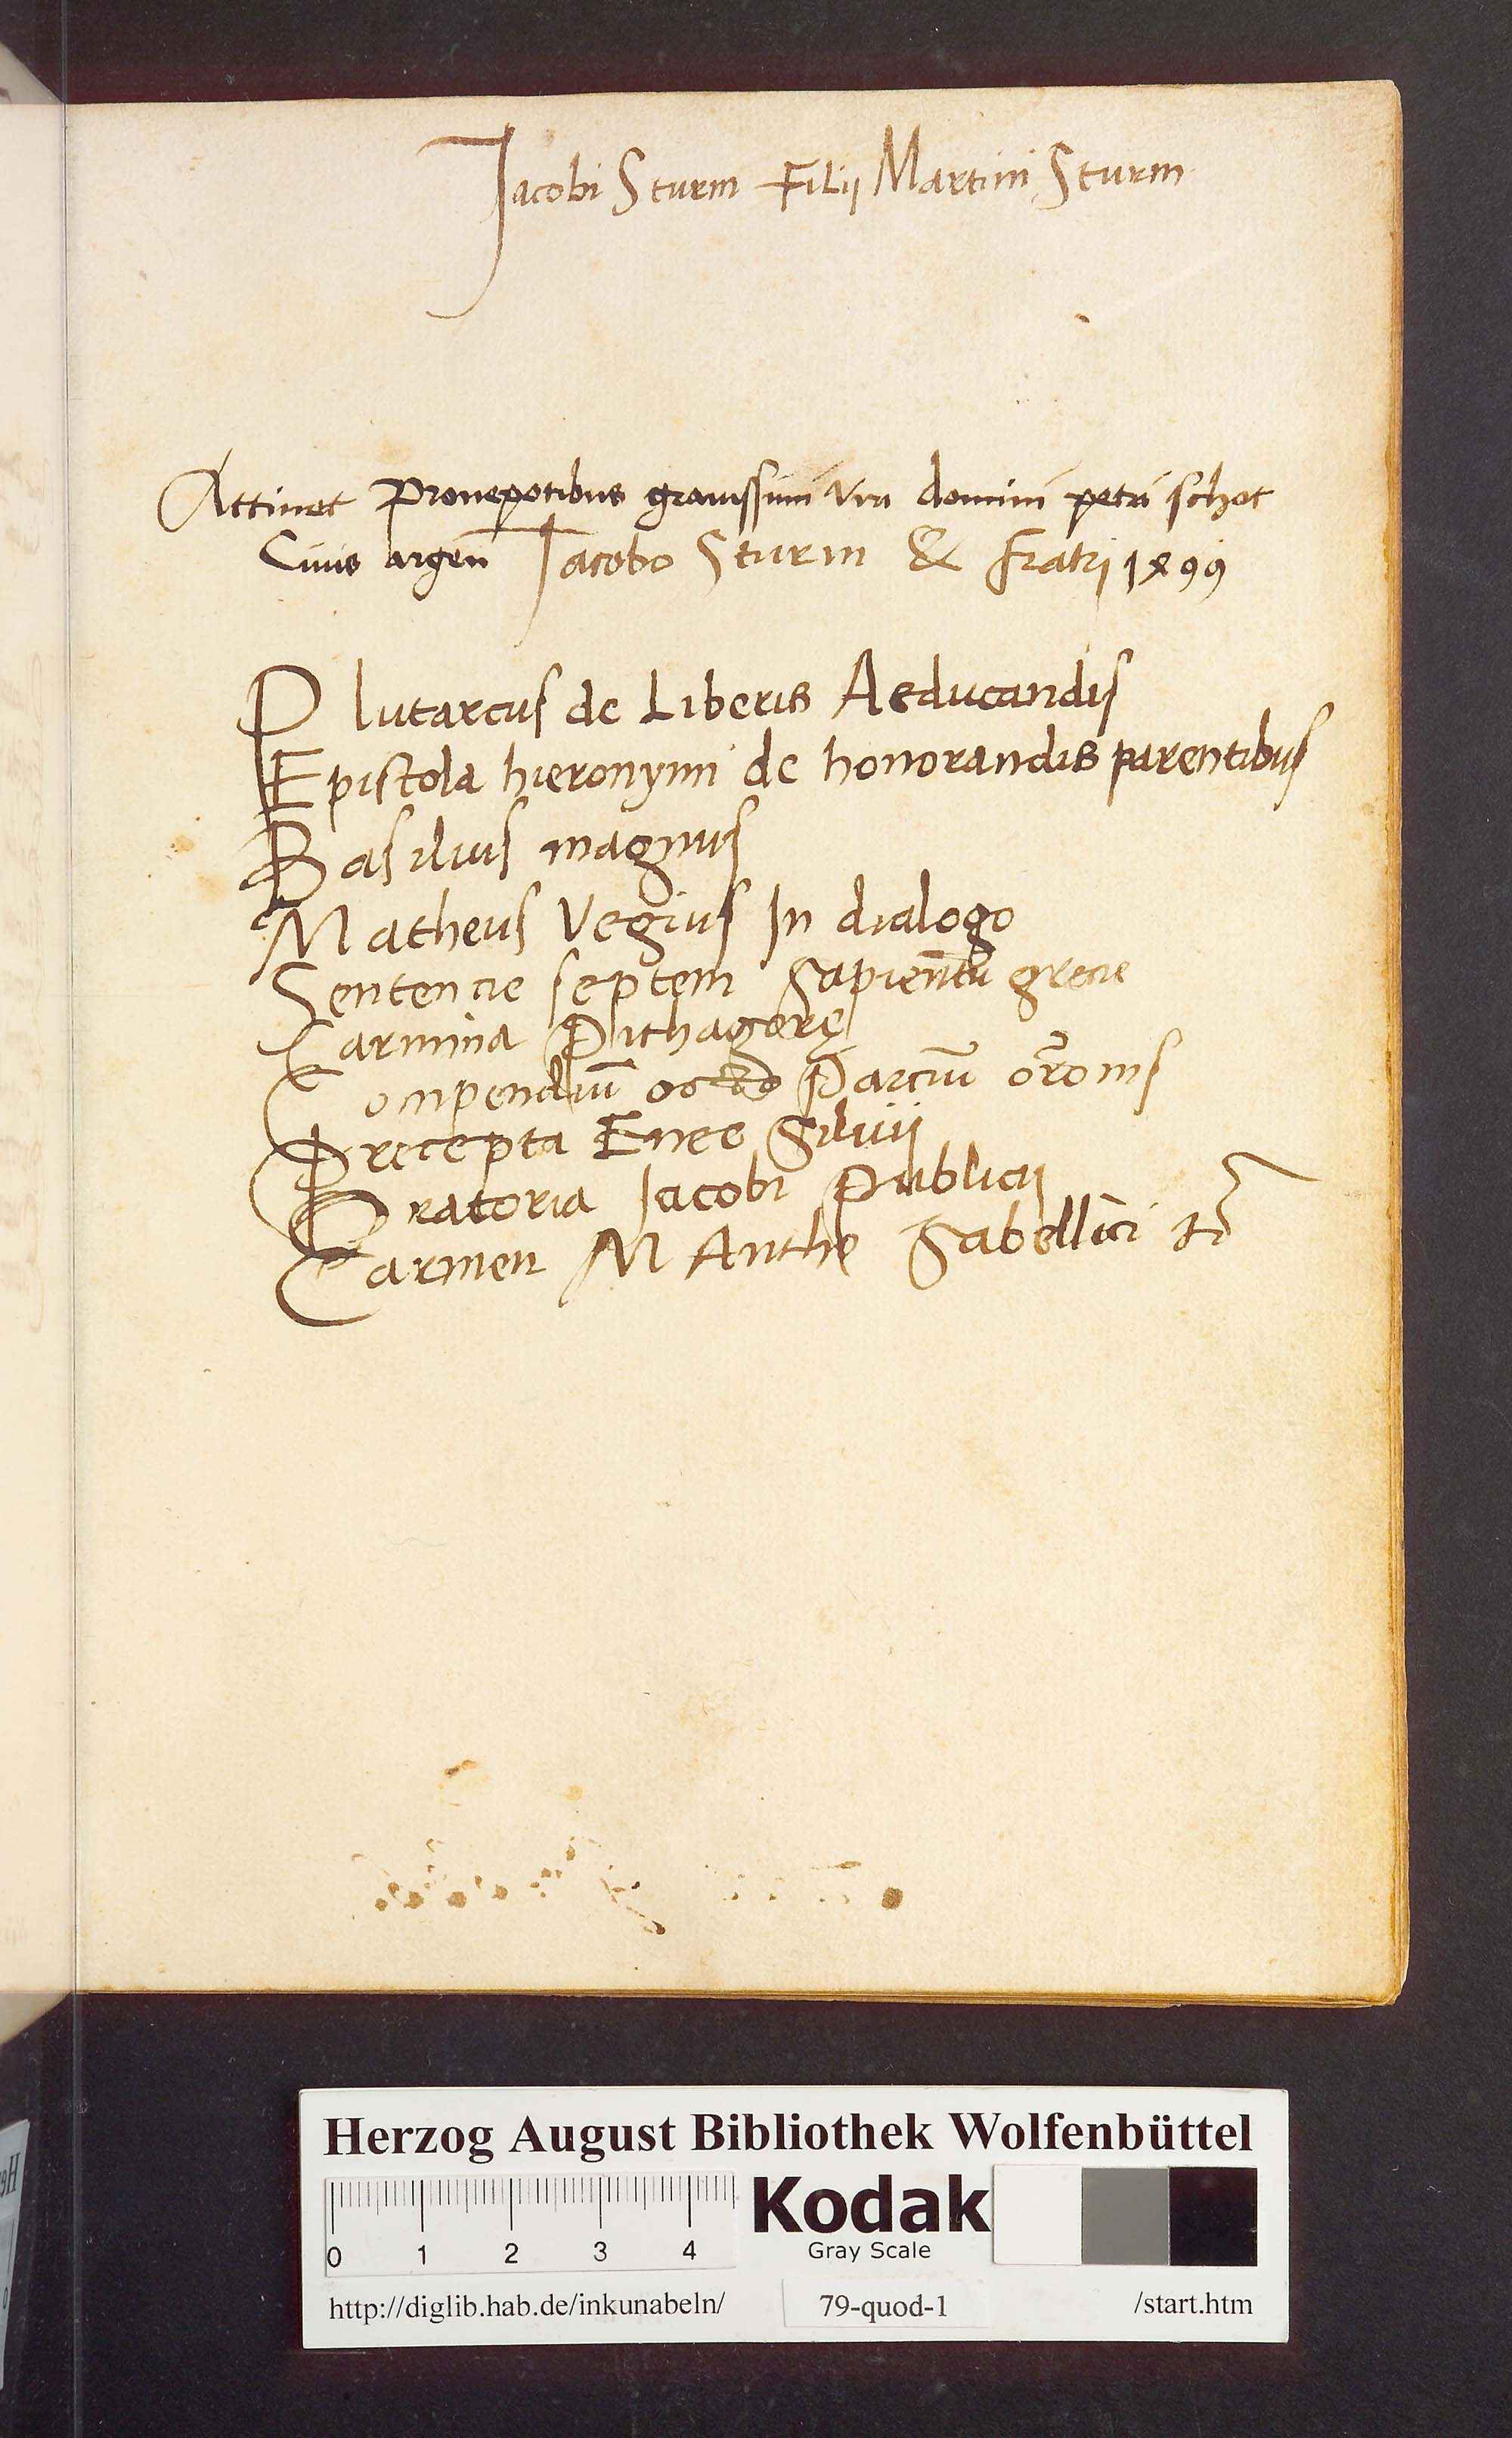 Jacobi Sturm Filij Martini Sturm
Attinet Pronepotibus grauissimi viri domini petri schot
Ciuis argeñ Jacobo Sturm & fratrj 1499
Plutarcus de Liberis Aeducandis
Epistola hieronymi de honorandis parentibus
Basilius magnus
Matheus Vegius In dialogo
Sentencie septem Sapientū grecie
Carmina Pithagorę
Conpendiū octo Parciū or̃onis
Precepta Enee Siluij
Oratoria Jacobi Publicij
Carmen M Anthe Sabellici
Herzog August Bibliothek Wolfenbüttel
Kodak
Gray Scale
0 1 2 3 4
http://diglib.hab.de/inkunabeln/ 79-quod-1 /start.htm